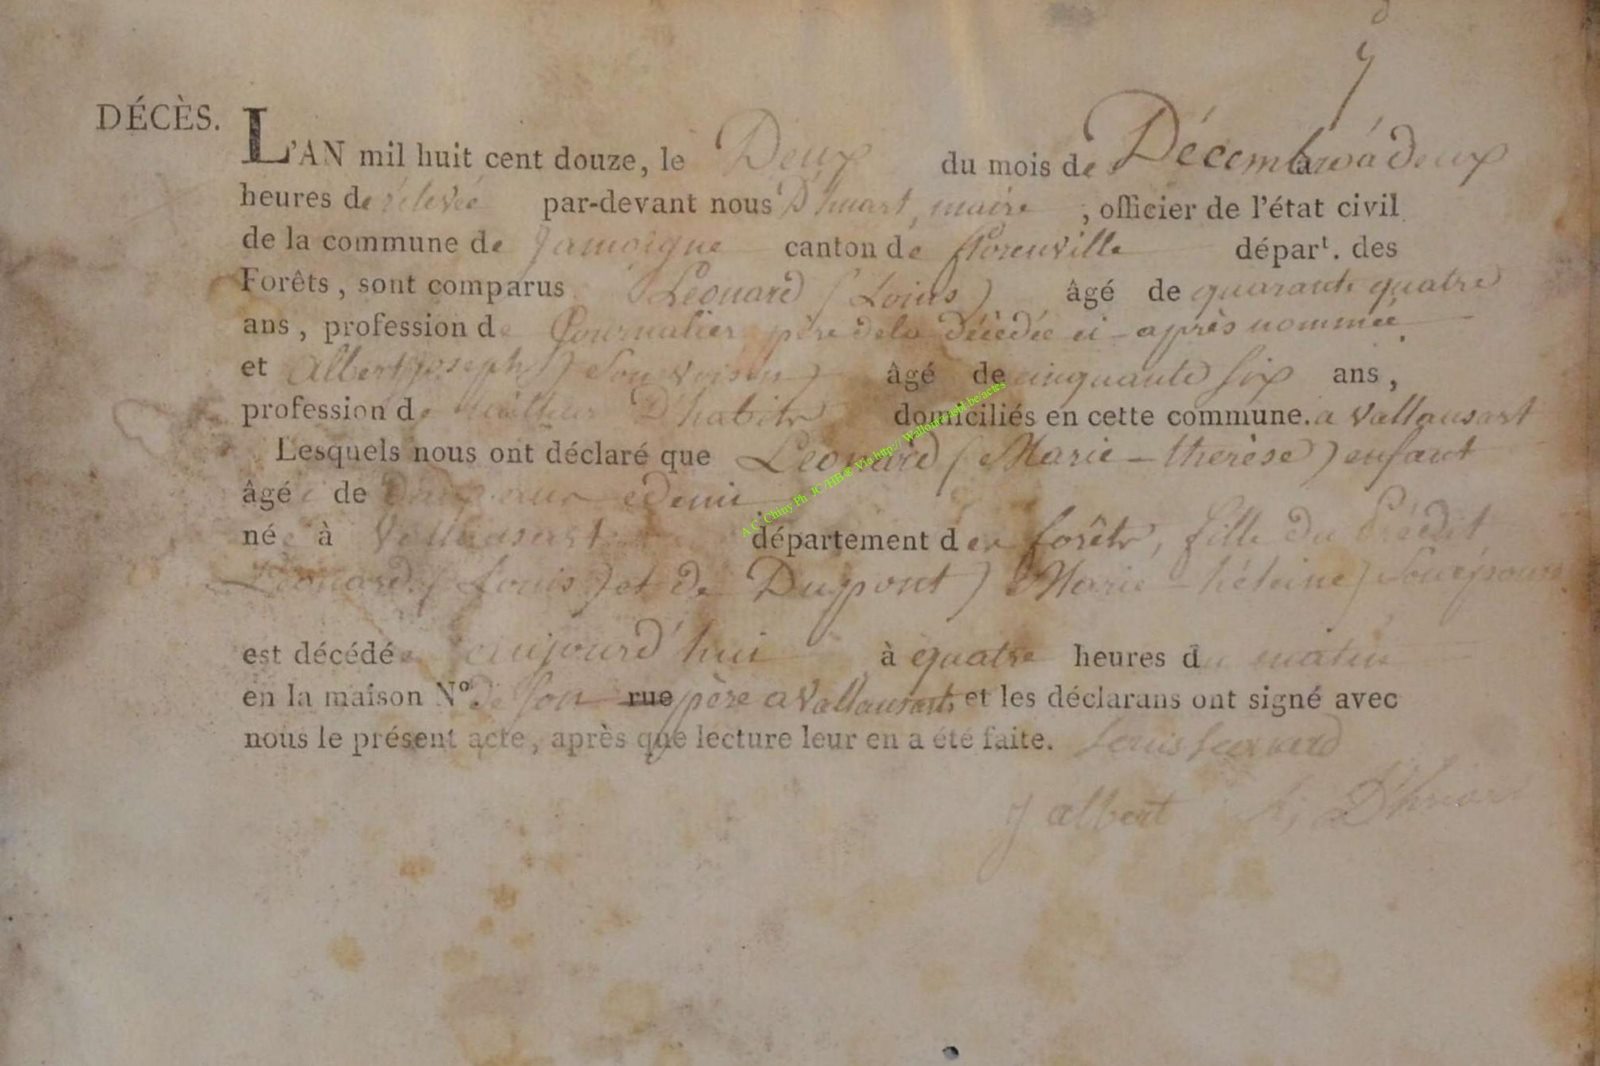 DÉCÈS. L'AN mil huit cent douze, le Deux du mois de Décembre à deux
heures de rélevée par-devant nous D'huart, maire, officier de l'état civil
de la commune de Jamoigne canton de florenville départ. des
Forêts, sont comparus Léonard (Louis) âgé de quarante quatre
ans, profession de Journalier père dela décédée ci-après nommée
et Albert (joseph) Son voisin âgé de cinquante six ans,
profession de tailleur D'habits domiciliés en cette commune. a Vallansart
Lesquels nous ont déclaré que Léonard (Marie-therèse) enfant
âgée de ans edemi
née à Vallansart département des forêts, fille du Prédit
Léonard (Louis) et de Duppont) Marie-hélaine) Son épouse
est décédée aujourd'hui à quatre heures du matin
en la maison N° de son rue père a Vallansart, et les déclarans ont signé avec
nous le présent acte, après que lecture leur en a été faite. Louis Leonard
J albert D'huart
A.C. Chiny Ph JC/HB & Via http:// Wallonia-asbl.be/actes